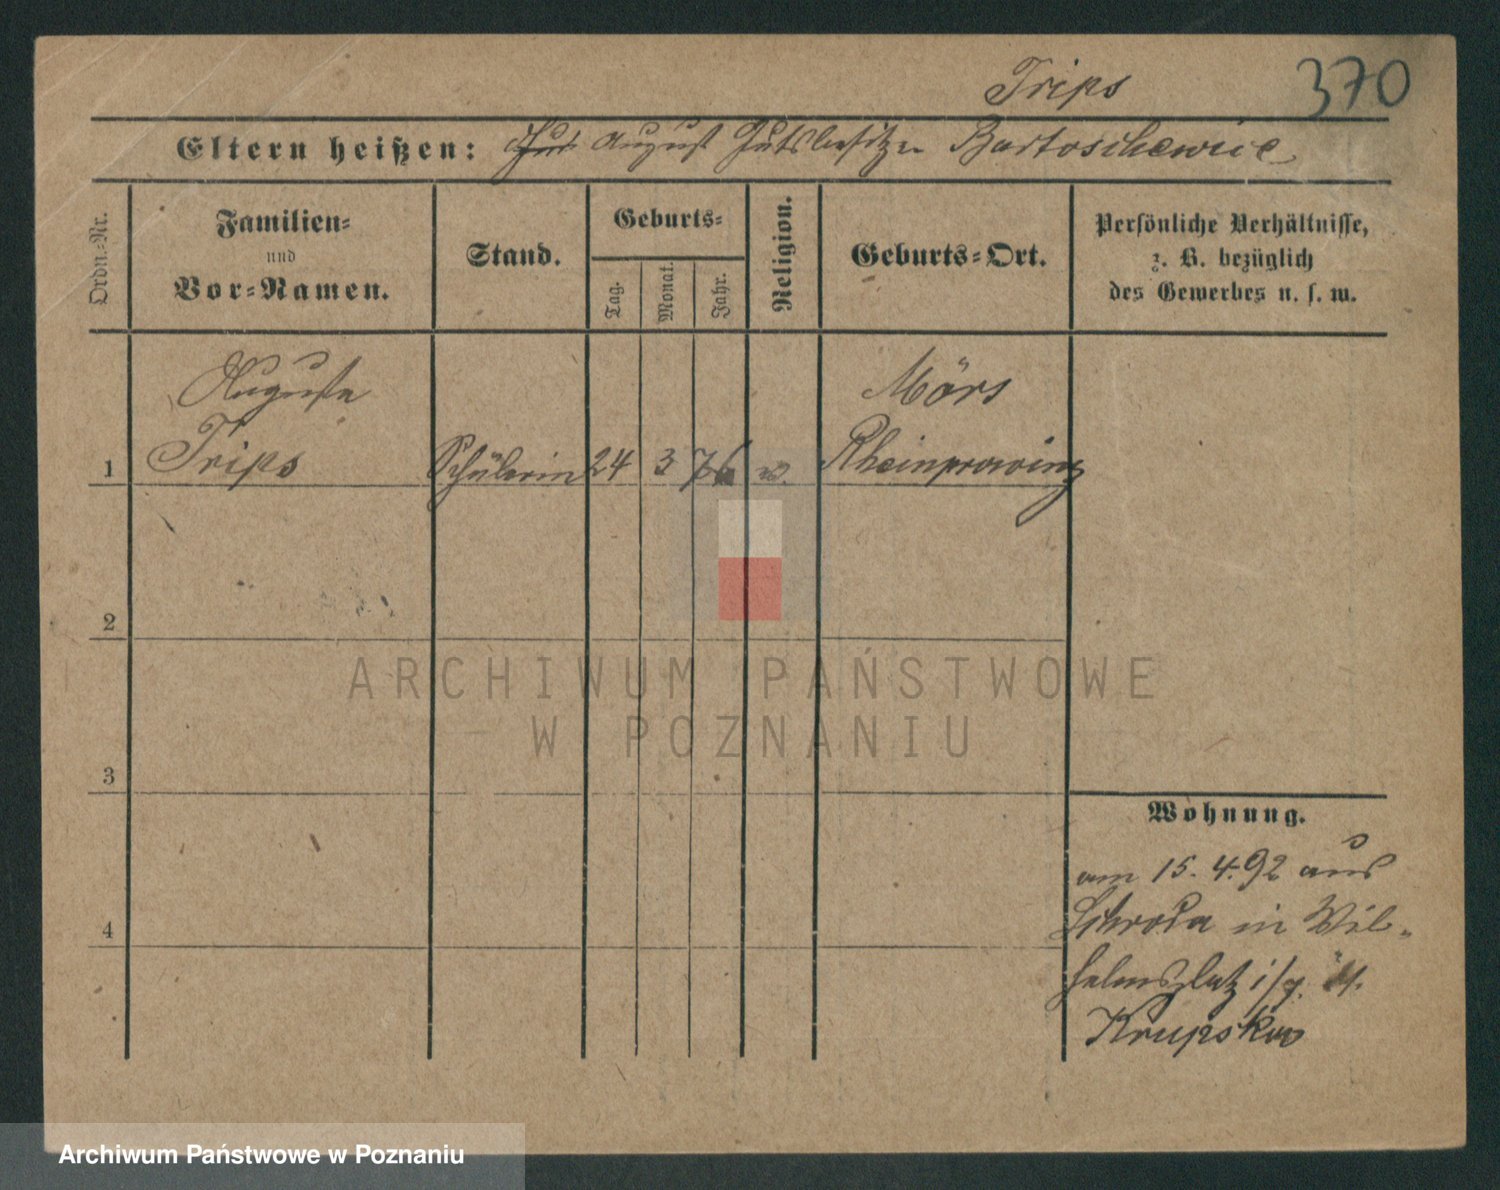 Trips
370
Eltern heißen: August Gutsbesitzer Bartoschewice
Ordn.-Nr.
Familien-
und
Vor-Namen.
Stand.
Geburts-
Tag.
Monat.
Jahr.
Religion.
Geburts-Ort.
Persönliche Verhältnisse,
z. B. bezüglich
des Gewerbes u. s. w.
Augusta
Trips
1
Schülerin
24
3
76
Mörs
Rheinprovinz
2
3
4
Wohnung.
am 15. 4. 92 aus
Schroda in Wil-
helmsplatz
Krupska
ARCHIWUM PAŃSTWOWE
W POZNANIU
Archiwum Państwowe w Poznaniu